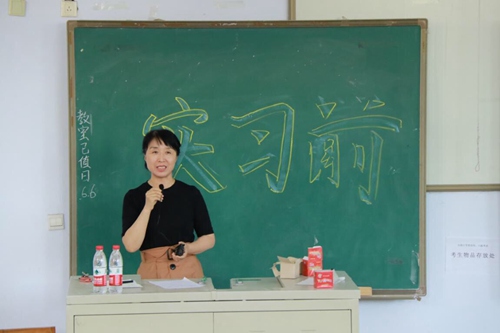 实习前
教室已值日
6.6
考生物品存放处